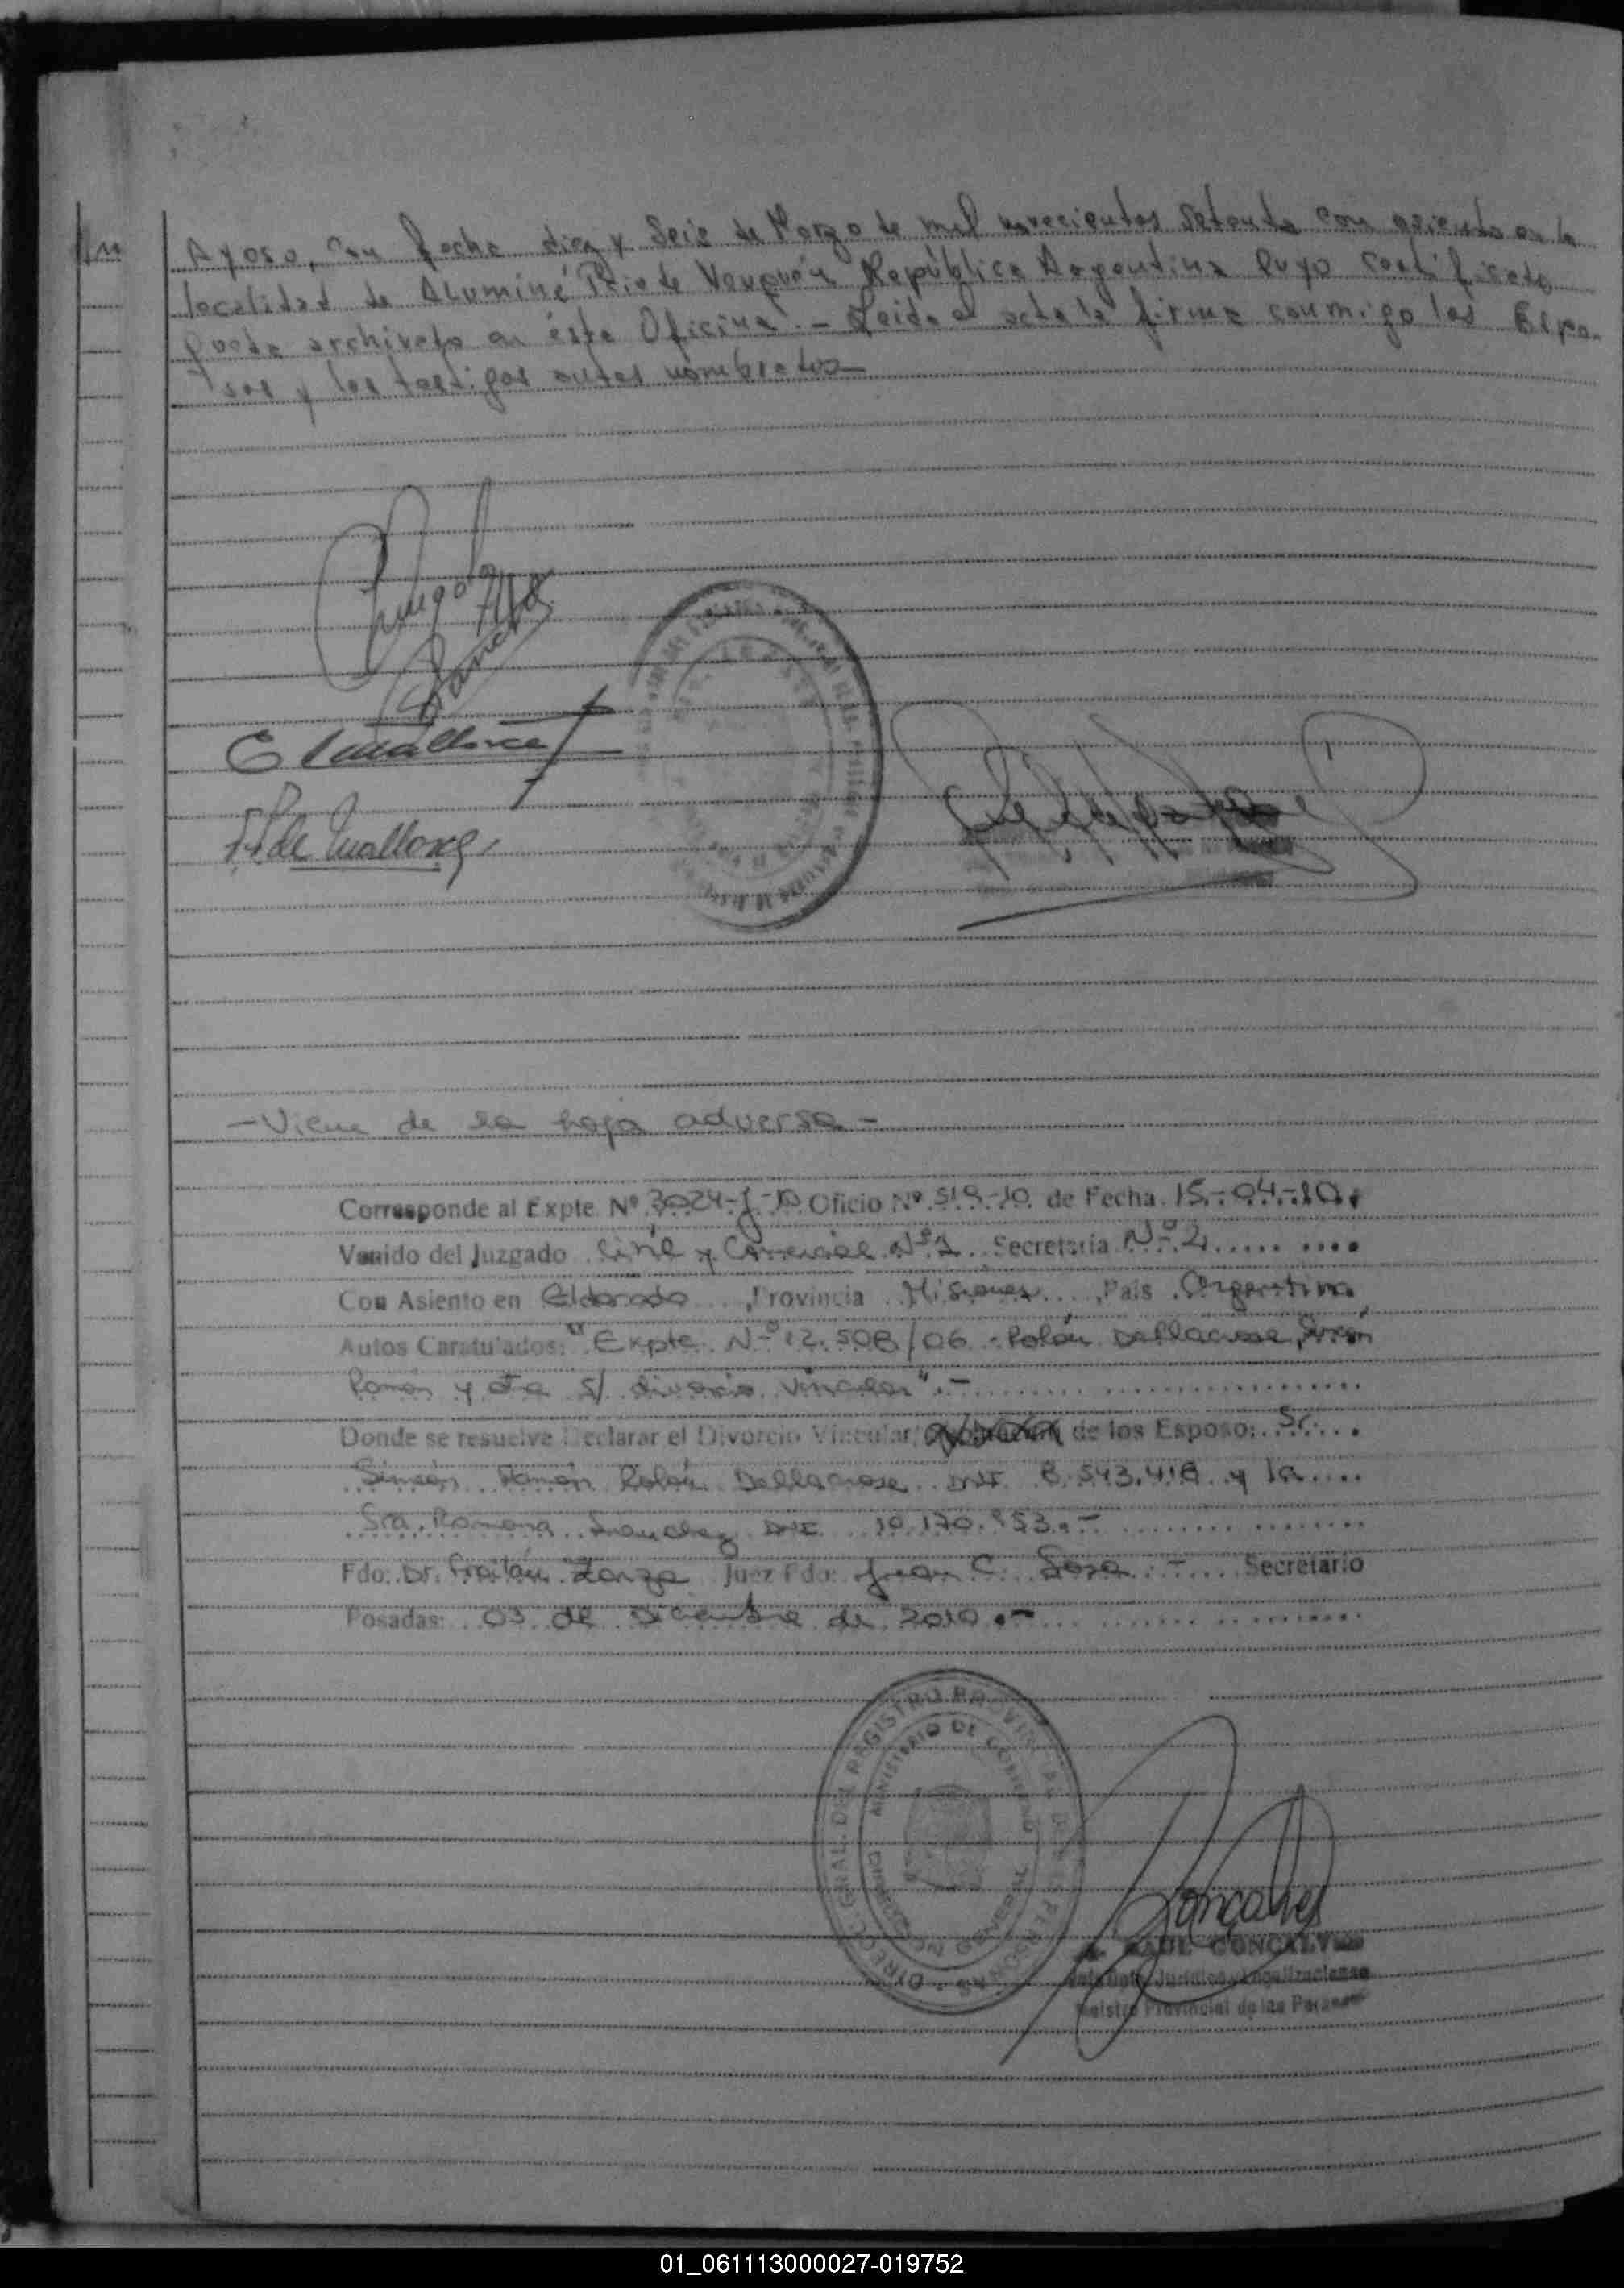 Ayoso, con fecha diez y Seis de Marzo de mil novecientos Setenta con asiento en la
localidad de Aluminé Pcia de Neuquén República Argentina Cuyo certificado
queda archivado en ésta Oficina.- Leida el acta la firman conmigo los Espo-
sos y los testigos antes nombrados
Sanchez
-Viene de la hoja adversa-
Corresponde al Expte. Nº 3024-J-10 Oficio Nº 519-10 de Fecha 15-04-10.
Venido del Juzgado Civil y Comercial Nº 1 Secretaría Nº 2
Con Asiento en Eldorado, Provincia Misiones, País Argentina
Autos Caratulados: "Expte. Nº 12.508/06 - Rolón Dellacrose, Simeón
Ramón y otra s/ divorcio vincular".-
Donde se resuelve Declarar el Divorcio Vincular/ de los Esposo: Sr.
Simeón Ramón Rolón Dellacrose DNI. 8.543.418 y la
Sra. Ramona Sanchez DNI. 10.170.953.-
Fdo: Dr. Froilán Zarza Juez Fdo: Juan C. Sosa.- Secretario
Posadas: 03 de Diciembre de 2010.-
DIRECC. GRAL. DEL REGISTRO PROVINCIAL DE LAS PERSONAS
MINISTERIO DE GOBIERNO
Gonçalves
RAUL GONÇALVES
Jefe Dpto. Jurídico y Legalizaciones
Registro Provincial de las Personas
01_061113000027-019752